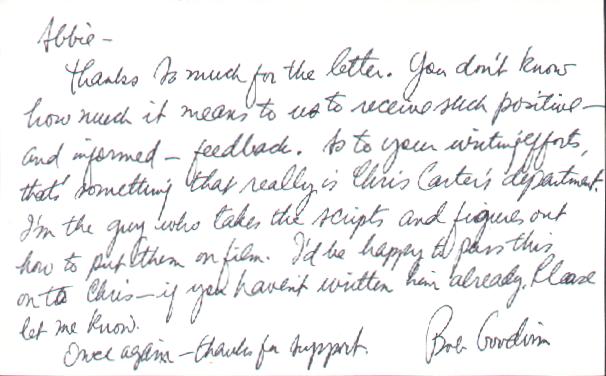 Abbie –
Thanks so much for the letter. You don't know
how much it means to us to receive such positive –
and informed – feedback. As to your writing efforts,
that's something that really is Chris Carter's department.
I'm the guy who takes the scripts and figures out
how to put them on film. I'd be happy to pass this
on to Chris – if you haven't written him already. Please
let me know.
Once again – thanks for support. Bob Goodwin